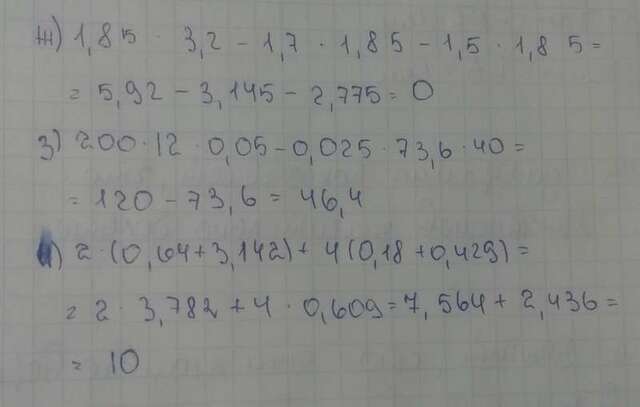 ж) 1,85 · 3,2 - 1,7 · 1,85 - 1,5 · 1,85 =
= 5,92 - 3,145 - 2,775 = 0
з) 200 · 12 · 0,05 - 0,025 · 73,6 · 40 =
= 120 - 73,6 = 46,4
и) 2 · (0,64 + 3,142) + 4(0,18 + 0,429) =
= 2 · 3,782 + 4 · 0,609 = 7,564 + 2,436 =
= 10